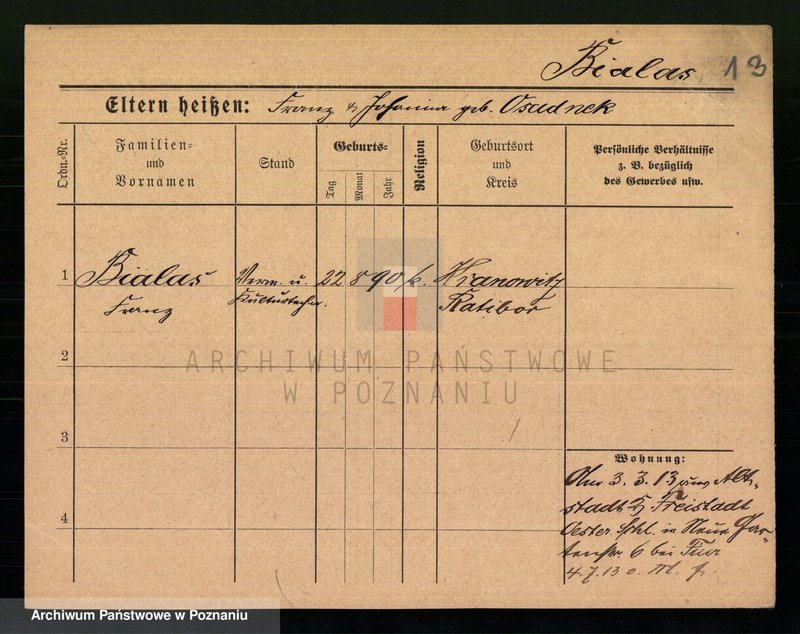 Bialas 13
Eltern heißen: Franz & Johanna geb. Osadnek
Ordn.-Nr.
Familien-
und
Vornamen
Stand
Geburts-
Tag
Monat
Jahr
Religion
Geburtsort
und
Kreis
Persönliche Verhältnisse
z. B. bezüglich
des Gewerbes usw.
1 Bialas Verm. u. 22 8 90 k. Kranowitz
Franz Kulturtechn. Ratibor
ARCHIWUM PAŃSTWOWE
W POZNANIU
2
3
4
Wohnung:
3. 3. 13 Alt-
stadt Freistadt
Oester. Schl. in Neue Gar-
tenstr. 6 bei
4.7.13 o.
Archiwum Państwowe w Poznaniu